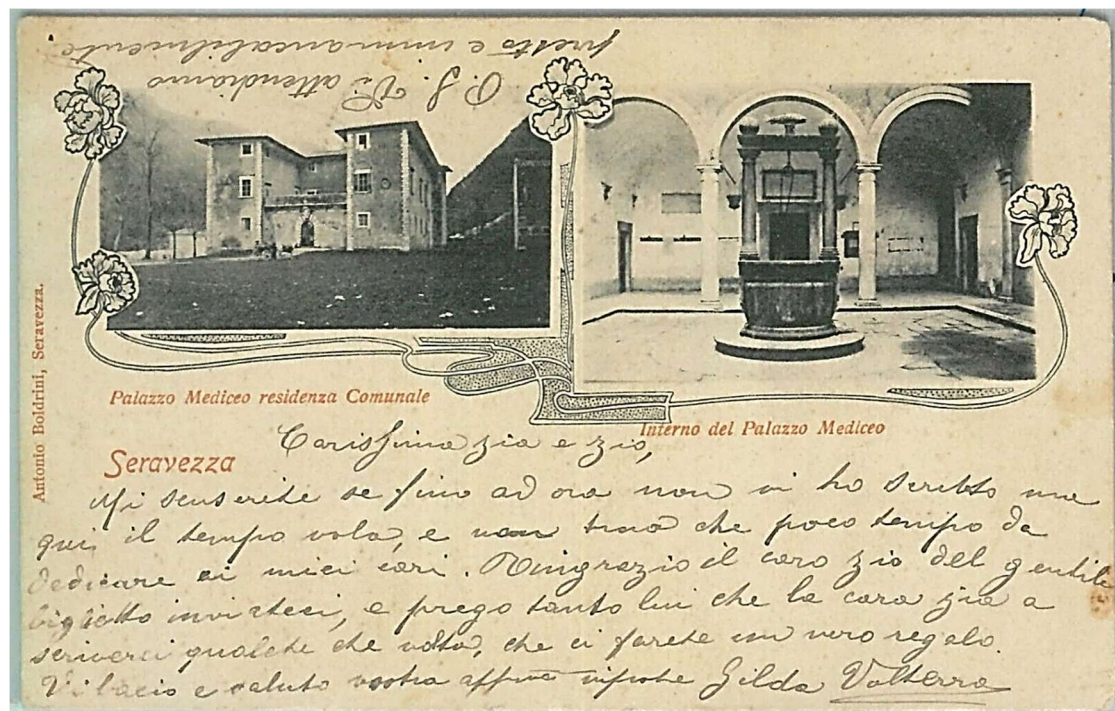 P.S. Vi attendiamo
presto e immancabilmente
Antonio Boldrini, Seravezza.
Palazzo Mediceo residenza Comunale
Interno del Palazzo Mediceo
Seravezza
Carissima zia e zio,
Mi scuserete se fino ad ora non vi ho scritto ma
qui, il tempo vola, e non trovo che poco tempo da
dedicare ai miei cari. Ringrazio il caro zio del gentile
biglietto inviateci, e prego tanto lui che la cara zia a
scriverci qualche che volta, che ci farete un vero regalo.
Vi bacio e saluto vostra affma nipote Gilda Volterra